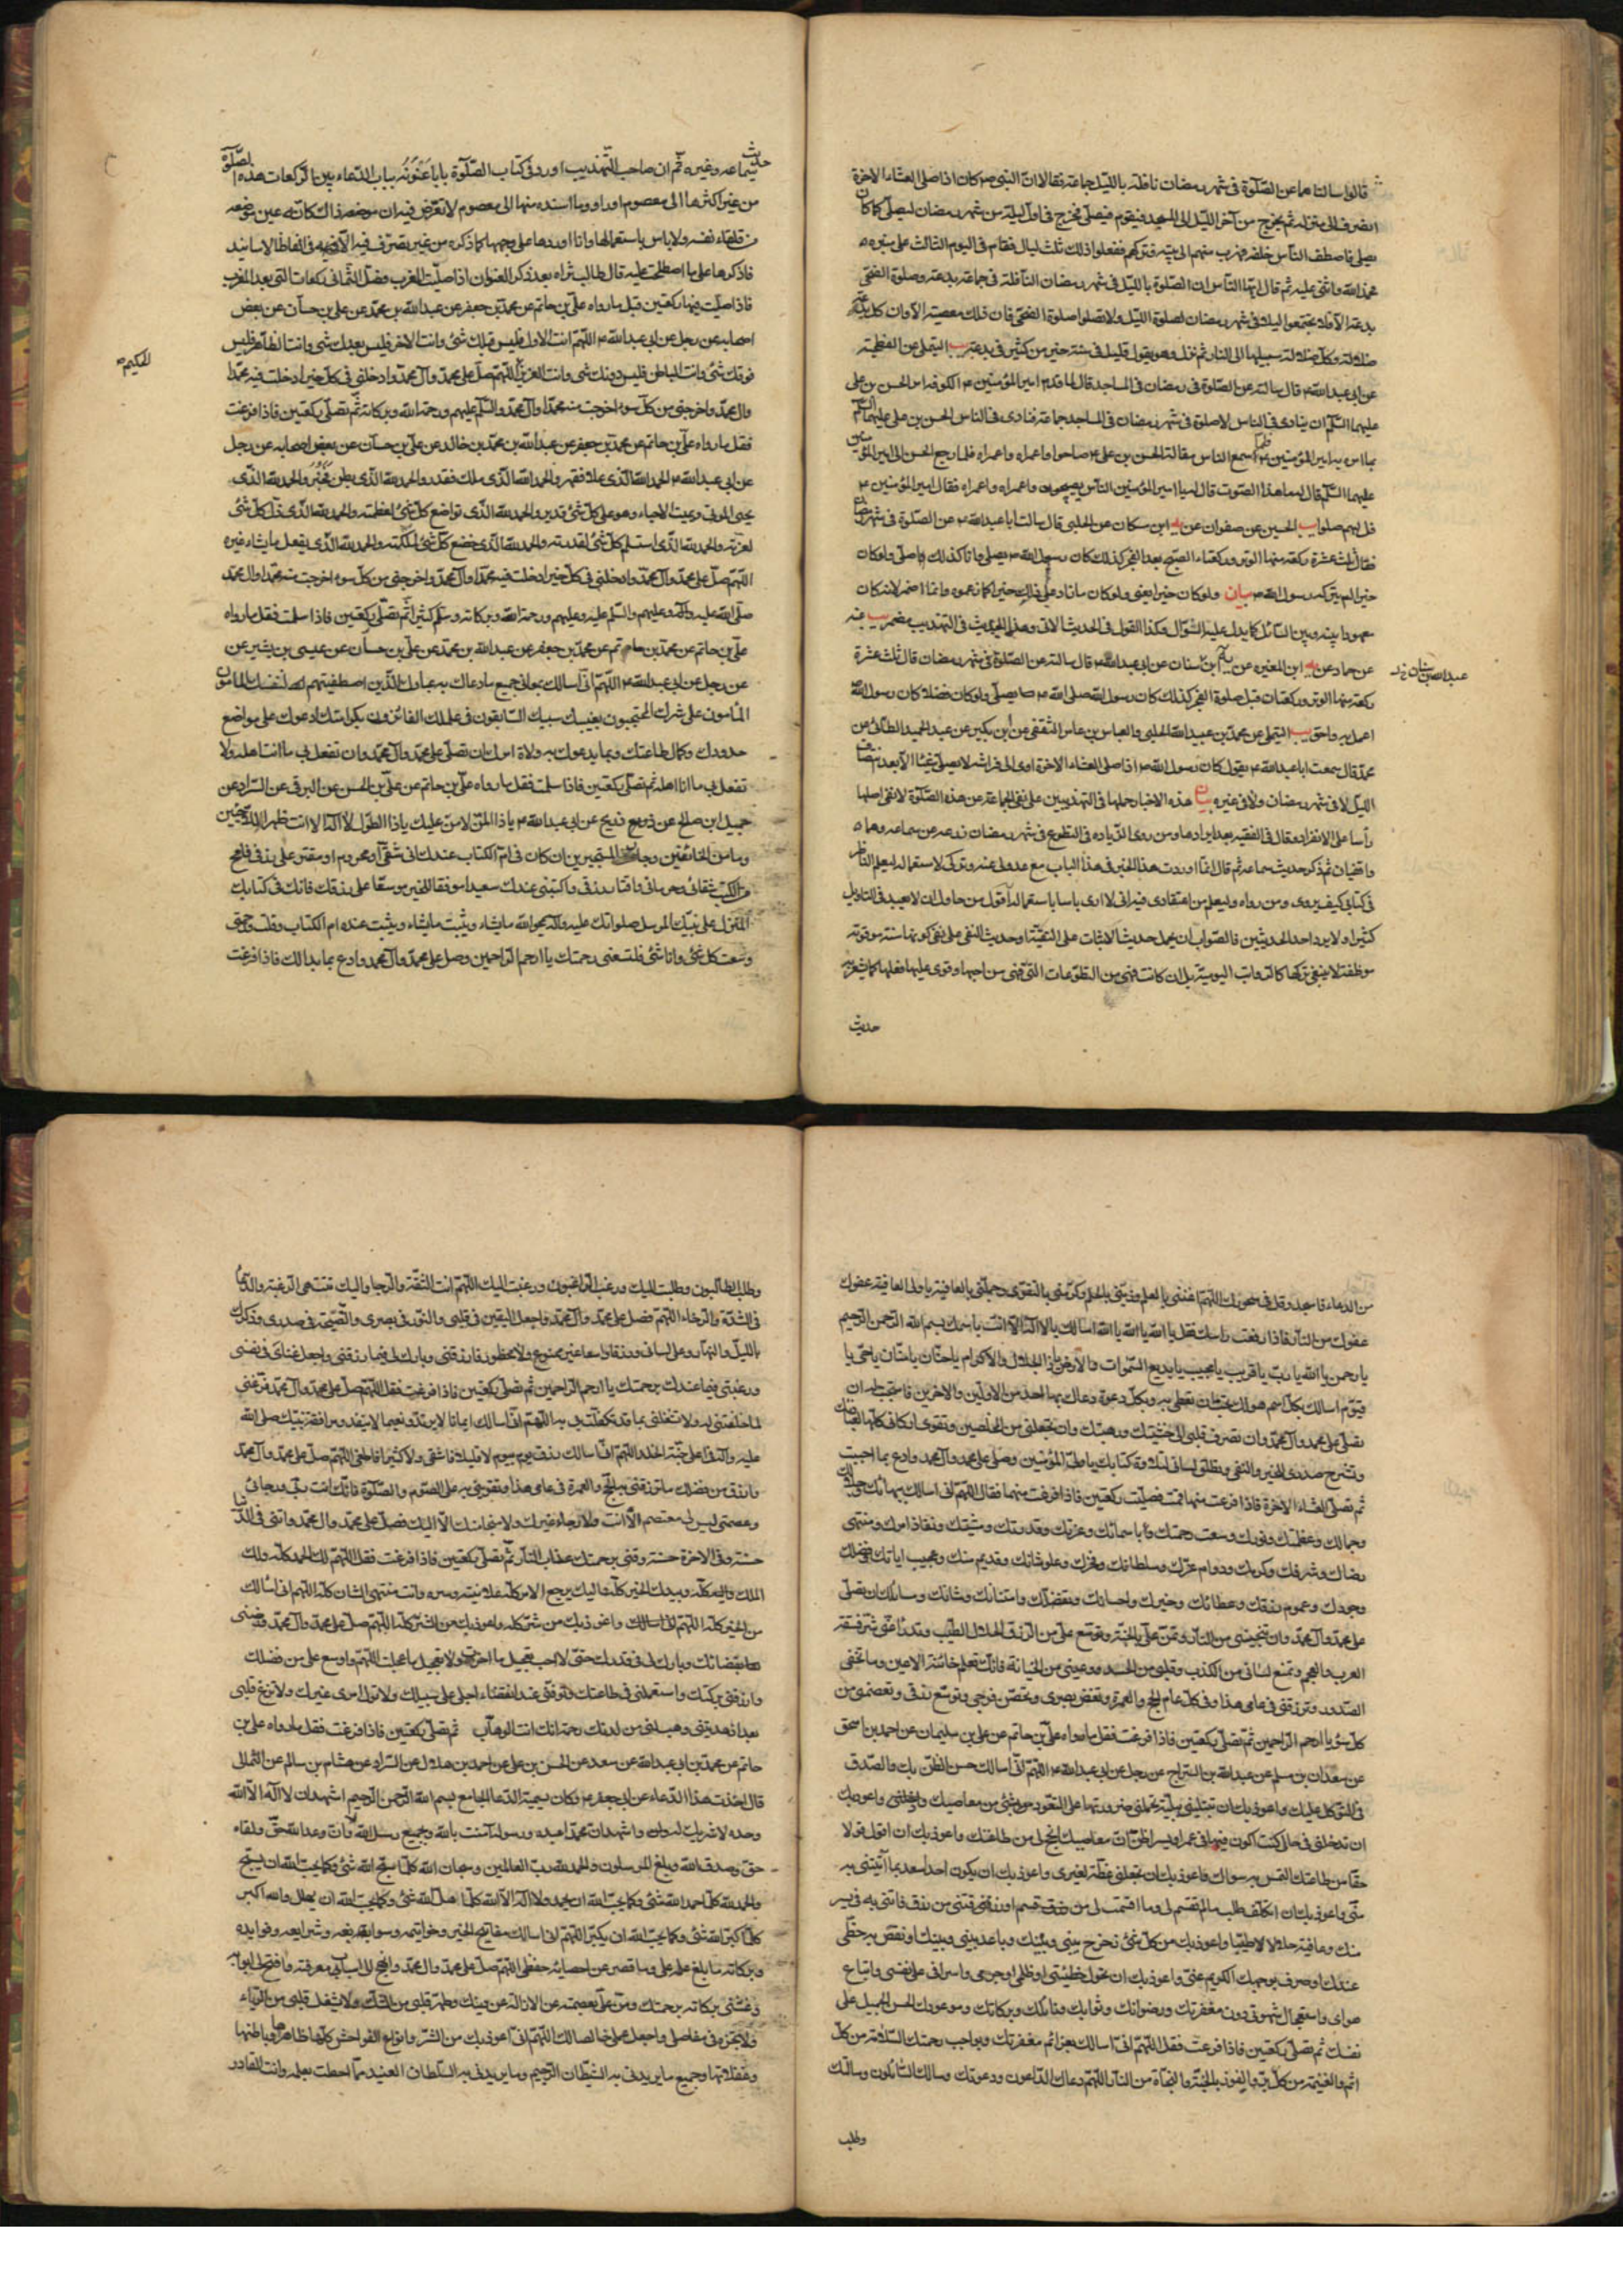 قالوا سالناهما عن الصّلوة فى شهر رمضان نافلة بالليل جماعة فقالا ان النبى ص كان اذا صلى العشاء الاخرة
انصرف الى منزله ثم يخرج من آخر الليل الى المسجد فيقوم فيصلى فخرج فى اول ليلة من شهر رمضان ليصلى كما كان
يصلى فاصطف الناس خلفه فهرب منهم الى بيته وتركهم ففعلوا ذلك ثلث ليال فقام فى اليوم الثالث على منبره
فحمد الله واثنى عليه ثم قال ايها الناس ان الصلوة بالليل فى شهر رمضان النافلة فى جماعة بدعة وصلوة الضحى
بدعة الا فلا تجتمعوا ليلا فى شهر رمضان لصلوة الليل ولا تصلوا صلوة الضحى فان ذلك معصية الا وان كل بدعة
ضلالة وكل ضلالة سبيلها الى النار ثم نزل وهو يقول قليل فى سنة خير من كثير فى بدعة يب التيملى عن الفطحية
عن ابى عبدالله ع قال سالته عن الصلوة فى رمضان فى المساجد قال لما قدم امير المؤمنين ع الكوفة امر الحسن بن على
عليهما السلم ان ينادى فى الناس لا صلوة فى شهر رمضان فى المساجد جماعة فنادى فى الناس الحسن بن على عليهما السلم
بما امره به امير المؤمنين ع فلما سمع الناس مقالة الحسن بن على ع صاحوا واعمراه واعمراه فلما رجع الحسن الى امير المؤمنين
عليهما السلم قال له ما هذا الصوت قال له يا امير المؤمنين الناس يصيحون واعمراه واعمراه فقال امير المؤمنين ع
قل لهم صلوا يب الحسين عن صفوان عن يه ابن مسكان عن الحلبى قال سالت ابا عبدالله ع عن الصلوة فى شهر رمضان
فقال ثلث عشرة ركعة منها الوتر وركعتا الصبح بعد الفجر كذلك كان رسول الله ص يصلى وانا كذلك اصلى ولو كان
خيرا لم يتركه رسول الله ص بيان ولو كان خيرا يعنى ولو كان ما زاد على ذلك خيرا كما زعموه وانما اضمر لانه كان
معهودا بينه وبين السائل كما يدل عليه السؤال وكذا القول فى الحديث الاتى وهذا الحديث فى التهذيب مضمر يب عنه
عن حماد عن يه ابن المغيره عن ابن سنان عن ابى عبدالله ع قال سالته عن الصلوة فى شهر رمضان قال ثلث عشرة
ركعة منها الوتر وركعتان قبل صلوة الفجر كذلك كان رسول الله صلى الله ص يصلى ولو كان فضلا كان رسول الله
اعمل به واحق يب التيملى عن محمد بن عبيد الله الحلبى والعباس بن عامر الثقفى عن ابن بكير عن عبد الحميد الطائى عن
محمد قال سمعت ابا عبدالله ع يقول كان رسول الله ص اذا صلى العشاء الاخرة اوى الى فراشه لا يصلى شيئا الا بعد انتصاف
الليل لا فى شهر رمضان ولا فى غيره بيان هذه الاخبار حملها فى التهذيبين على نفى الجماعة عن هذه الصلوة لا نفى اصلها
رأسا على الانفراد وقال فى الفقيه بعد ايرادها ومن روى الزياده فى التطوع فى شهر رمضان زرعه عن سماعه وهما
واقفيان ثم ذكر حديث سماعه ثم قال انما اوردت هذا الخبر فى هذا الباب مع عدولى عنه وتركى لاستعماله ليعلم الناظر
فى كتابى كيف يروى ومن رواه وليعلم من اعتقادى فيه انى لا ارى باسا باستعماله اقول من حاول ان لا يبعد فى التاويل
كثيرا ولا يرد احد الحديثين فالصواب ان يحمل حديث الاثبات على التقية او حديث النفى على نفى كونها سنة موقوته
موظفة لا ينبغى تركها كالرواتب اليومية بل ان كانت فهى من التطوعات التى فى من احبها وقوى عليها فعلها كما يشعر به
حديث
عبد الله بن سنان خ ل
حديث سماعه وغيره ثم ان صاحب التهذيب اورد فى كتاب الصلوة بابا عنونه بباب الدعاء بين الركعات هذه الصلوة
من غير اكثرها الى معصوم او
من تلقاء نفسه ولا باس باستعمالها وانا اوردها على وجهها كما ذكره من غير تصرف فيه الا فى الفاظ الاسانيد
فاذكرها على ما اصطلحت عليه قال طاب ثراه بعد ذكر العنوان اذا صليت المغرب وفصل الثمانى ركعات التى بعد المغرب
فاذا صليت منها ركعتين فقل ما رواه على بن حاتم عن محمد بن جعفر عن عبدالله بن محمد عن على بن حسان عن بعض
اصحابه عن رجل عن ابى عبدالله ع اللهم انت الاول فليس قبلك شئ وانت الاخر فليس بعدك شئ وانت الظاهر فليس
فوقك شئ وانت الباطن فليس دونك شئ وانت العزيز اللهم صل على محمد وآل محمد وادخلنى فى كل خير ادخلت فيه محمدا
وال محمد واخرجنى من كل سوء اخرجت منه محمدا وآل محمد والسلم عليهم ورحمة الله وبركاته ثم تصلى ركعتين فاذا فرغت
فقل ما رواه على بن حاتم عن محمد بن جعفر عن عبدالله بن محمد بن خالد عن على بن حسان عن بعض اصحابه عن رجل
عن ابى عبدالله ع الحمد لله الذى علا فقهر والحمد لله الذى ملك فقدر والحمد لله الذى بطن فخبر والحمد لله الذى
يحيى الموتى ويميت الاحياء وهو على كل شئ قدير والحمد لله الذى تواضع كل شئ لعظمته والحمد لله الذى ذل كل شئ
لعزته والحمد لله الذى استسلم كل شئ لقدرته والحمد لله الذى خضع كل شئ لملكته والحمد لله الذى يفعل ما يشاء غيره
اللهم صل على محمد وآل محمد وادخلنى فى كل خير ادخلت فيه محمدا وآل محمد واخرجنى من كل سوء اخرجت منه محمدا وال محمد
صلى الله عليه وعليهم والسلم عليه وعليهم ورحمة الله وبركاته وسلم كثيرا ثم تصلى ركعتين فاذا سلمت فقل ما رواه
على بن حاتم عن محمد بن عن محمد بن جعفر عن عبدالله بن محمد عن على بن حسان عن عيسى بن بشير عن
عن رجل عن ابى عبدالله ع اللهم انى اسالك بمعانى جميع ما دعاك به عبادك الذين اصطفيتهم لنفسك المامون
المأمون على سرك المحتجبون بغيبك
حدودك وكمال طاعتك وبما يدعوك به ولاة امرك ان تصلى على محمد وآل محمد وان تفعل بى ما انت اهله ولا
تفعل بى ما انا اهله ثم تصلى ركعتين فاذا سلمت فقل ما رواه على بن حاتم عن على بن الحسن عن البرقى عن السراد عن
جميل ابن صالح عن ذريح عن ابى عبدالله ع يا ذا المن لا من عليك يا ذا الطول لا آله الا انت ظهر اللاجئين
ومامن الخائفين وجار المستجيرين ان كان فى ام الكتاب عندك انى شقى او محروم او مقتر على رزقى فامح
من ام الكتاب شقائى وحرمانى واقتار رزقى واكتبنى عندك سعيدا موفقا للخير موسعا على رزقك فانك قلت فى كتابك
المنزل على نبيك المرسل صلواتك عليه وآله يمحوا الله ما يشاء ويثبت وعنده ام الكتاب وقلت ورحمتى
وسعت كل شئ وانا شئ فلتسعنى رحمتك يا ارحم الراحمين وصل على محمد وآل محمد وادع بما بدا لك فاذا فرغت
الحكيم
من الدعاء فاسجد وقل فى سجودك اللهم اغننى بالعلم وزينى بالحلم وكرمنى بالتقوى وجملنى بالعافية يا ولى العافية عفوك
عفوك من النار فاذا رفعت راسك فقل يا الله يا الله يا الله اسالك بلا اله الا انت باسمك بسم الله الرحمن الرحيم
يا رحمن يا الله يا رب يا قريب يا مجيب يا بديع السموات والارض يا ذا الجلال والاكرام يا حنان يا منان يا حى يا
قيوم اسالك بكل اسم هو لك تحب ان تدعى به وبكل دعوة دعاك بها احد من الاولين والاخرين فاستجبت له ان
تصلى على محمد وآل محمد وان تصرف قلبى الى خشيتك ورهبتك وان تجعلنى من المخلصين وتقوى اركانى كلها لعبادتك
وتشرح صدرى للخير والتقى وتطلق لسانى لتلاوة كتابك يا ولى المؤمنين وصل على محمد وال محمد وادع بما احببت
ثم تصلى العشاء الاخرة فاذا فرغت منها قمت فصليت ركعتين فاذا فرغت منهما فقال اللهم انى اسالك ببهائك وجلالك
وجمالك وعظمتك ونورك وسعت رحمتك وباسمائك وعزتك وقدرتك ومشيتك ونفاذ امرك ومنتهى
رضاك وشرفك وكرمك ودوام عزك وسلطانك وفخرك وعلو شانك وقديم منك وعجيب اياتك وفضلك
وجودك وعموم رزقك وعطائك وخيرك واحسانك وتفضلك وامتنانك وشانك وسالك ان تصلى
على محمد وآل محمد وان تنجينى من النار وتمن على بالجنة وتوسع على من الرزق الحلال الطيب وتدرأ عنى شر فسقة
العرب والعجم وتمنع لسانى من الكذب وقلبى من الحسد وعينى من الخيانة فانك تعلم خائنة الاعين وما تخفى
الصدور وترزقنى فى عامى هذا وفى كل عام الحج والعمرة وتغض بصرى وتحصن فرجى وتوسع رزقى وتعصمنى من
كل سوء يا ارحم الراحمين ثم تصلى ركعتين فاذا فرغت فقل ما رواه على بن حاتم عن على بن سليمان عن احمد بن اسحق
عن سعدان بن مسلم عن عبدالله بن السراج عن رجل عن ابى عبدالله ع اللهم انى اسالك حسن الظن بك والصدق
فى التوكل عليك واعوذ بك ان تبتلينى ببلية تحملنى ضرورتها على التعوذ بشئ من معاصيك واعوذ بك
ان تدخلنى فى حال كنت اكون فيها فى عسر او يسر اظن ان معاصيك انجح لى من طاعتك واعوذ بك ان اقول قولا
حقا من طاعتك التمس به سواك واعوذ بك ان تجعلنى عظة لغيرى واعوذ بك ان يكون احد اسعد بما آتيتنى به
منى واعوذ بك ان اتكلف طلب ما لم تقسم لى وما قسمت لى من قسم او رزقتنى من رزق فاتنى به فى يسر
منك وعافية حلالا طيبا واعوذ بك من كل شئ تزحزح بينى وبينك وباعد بينى وبينك او نقص به حظى
عندك او صرف بوجهك الكريم عنى واعوذ بك ان تحول خطيئتى او ظلمى او جرمى واسرافى على نفسى واتباع
هواى واستعجال شهوتى دون مغفرتك ورضوانك وثوابك ونائلك وبركاتك وموعودك الحسن الجميل على
نفسك ثم تصلى ركعتين فاذا فرغت فقل اللهم انى اسالك بعزائم مغفرتك وبواجب رحمتك السلامة من كل
اثم والغنيمة من كل بر والفوز بالجنة والنجاة من النار اللهم دعاك الداعون ودعوتك وسالك السائلون وسالتك
وطلب
وطلب الطالبون وطلبت اليك ورغب الراغبون ورغبت اليك اللهم انت الثقة والرجا واليك منتهى الرغبة والدعا
فى الشدة والرخاء اللهم فصل على محمد وآل محمد واجعل اليقين فى قلبى والنور فى بصرى والنصيحة فى صدرى وذكرك
بالليل والنهار وعلى لسانى ورزقا واسعا غير ممنوع ولا محظور فارزقنى وبارك لى فيما رزقتنى واجعل غناى فى نفسى
ورغبتى فيما عندك برحمتك يا ارحم الراحمين ثم تصلى ركعتين فاذا فرغت فقل اللهم صل على محمد وآل محمد وفرغنى
لما خلقتنى له ولا تشغلنى بما قد تكفلت لى به اللهم انى اسالك ايمانا لا يرتد ونعيما لا ينفد ومرافقة نبيك صلى الله
عليه وآله فى اعلى جنة الخلد اللهم انى اسالك رزق يوم بيوم لا قليلا فاشقى ولا كثيرا فاطغى اللهم صل على محمد وآل محمد
وارزقنى من فضلك ما ترزقنى به الحج والعمرة فى عامى هذا وتقوينى به على الصوم والصلوة فانك انت ربى ورجائى
وعصمتى ليس لى معتصم الا انت ولا رجاء غيرك ولا منجا منك الا اليك فصل على محمد وال محمد وآتنى فى الدنيا
حسنة وفى الاخرة حسنة وقنى برحمتك عذاب النار ثم تصلى ركعتين فاذا فرغت فقل اللهم لك الحمد كله ولك
الملك كله وبيدك الخير كله واليك يرجع الامر كله علانيته وسره وانت منتهى الشان كله اللهم انى اسالك
من الخير كله اللهم انى اسالك واعوذ بك من شر كله واعوذ بك من الشر كله اللهم صل على محمد وآل محمد ورضنى
بقضائك وبارك لى فى قدرك حتى لا احب تعجيل ما اخرت ولا تاخير ما عجلت اللهم واوسع على من فضلك
وارزقنى بركتك واستعملنى فى طاعتك وتوفنى عند انقضاء اجلى على سبيلك ولا تول امرى غيرك ولا تزغ قلبى
بعد اذ هديتنى وهب لى من لدنك رحمة انك انت الوهاب ثم تصلى ركعتين فاذا فرغت فقل ما رواه على بن
حاتم عن محمد بن ابى عبدالله عن سعد عن الحسن بن على عن احمد بن هلال عن السراد عن هشام بن سالم عن الثمالى
قال اخذت هذا الدعاء عن ابى جعفر ع وكان يسميه الدعا الجامع بسم الله الرحمن الرحيم اشهد ان لا اله الا الله
وحده لا شريك له واشهد ان محمدا عبده ورسوله آمنت بالله وبجميع رسل الله وان وعد الله حق ولقاءه
حق وصدق الله وبلغ المرسلون والحمد لله رب العالمين وسبحان الله كلما سبح الله شئ وكما يحب الله ان يسبح
والحمد لله كلما حمد الله شئ وكما يحب الله ان يحمد ولا اله الا الله كلما هلل الله شئ وكما يحب الله ان يهلل والله اكبر
كلما كبر الله شئ وكما يحب الله ان يكبر اللهم انى اسالك مفاتيح الخير وخواتيمه وسوابغه وشرايعه وفوايده
وبركاته ما بلغ علمه علمى وما قصر عن احصائه حفظى اللهم صل على محمد وال محمد وانهج لى اسباب معرفته وافتح لى ابوابه
وغشنى بركاته برحمتك ومن على بعصمة عن الازالة عن دينك وطهر قلبى من الشك ولا تشغل قلبى
واجعل اللهم انى اعوذ بك من الشر وانواع الفواحش كلها ظاهرها وباطنها
وغفلاتها وجميع ما يريدنى به الشيطان الرجيم وما يريدنى به السلطان العنيد مما احطت بعلمه وانت القادر